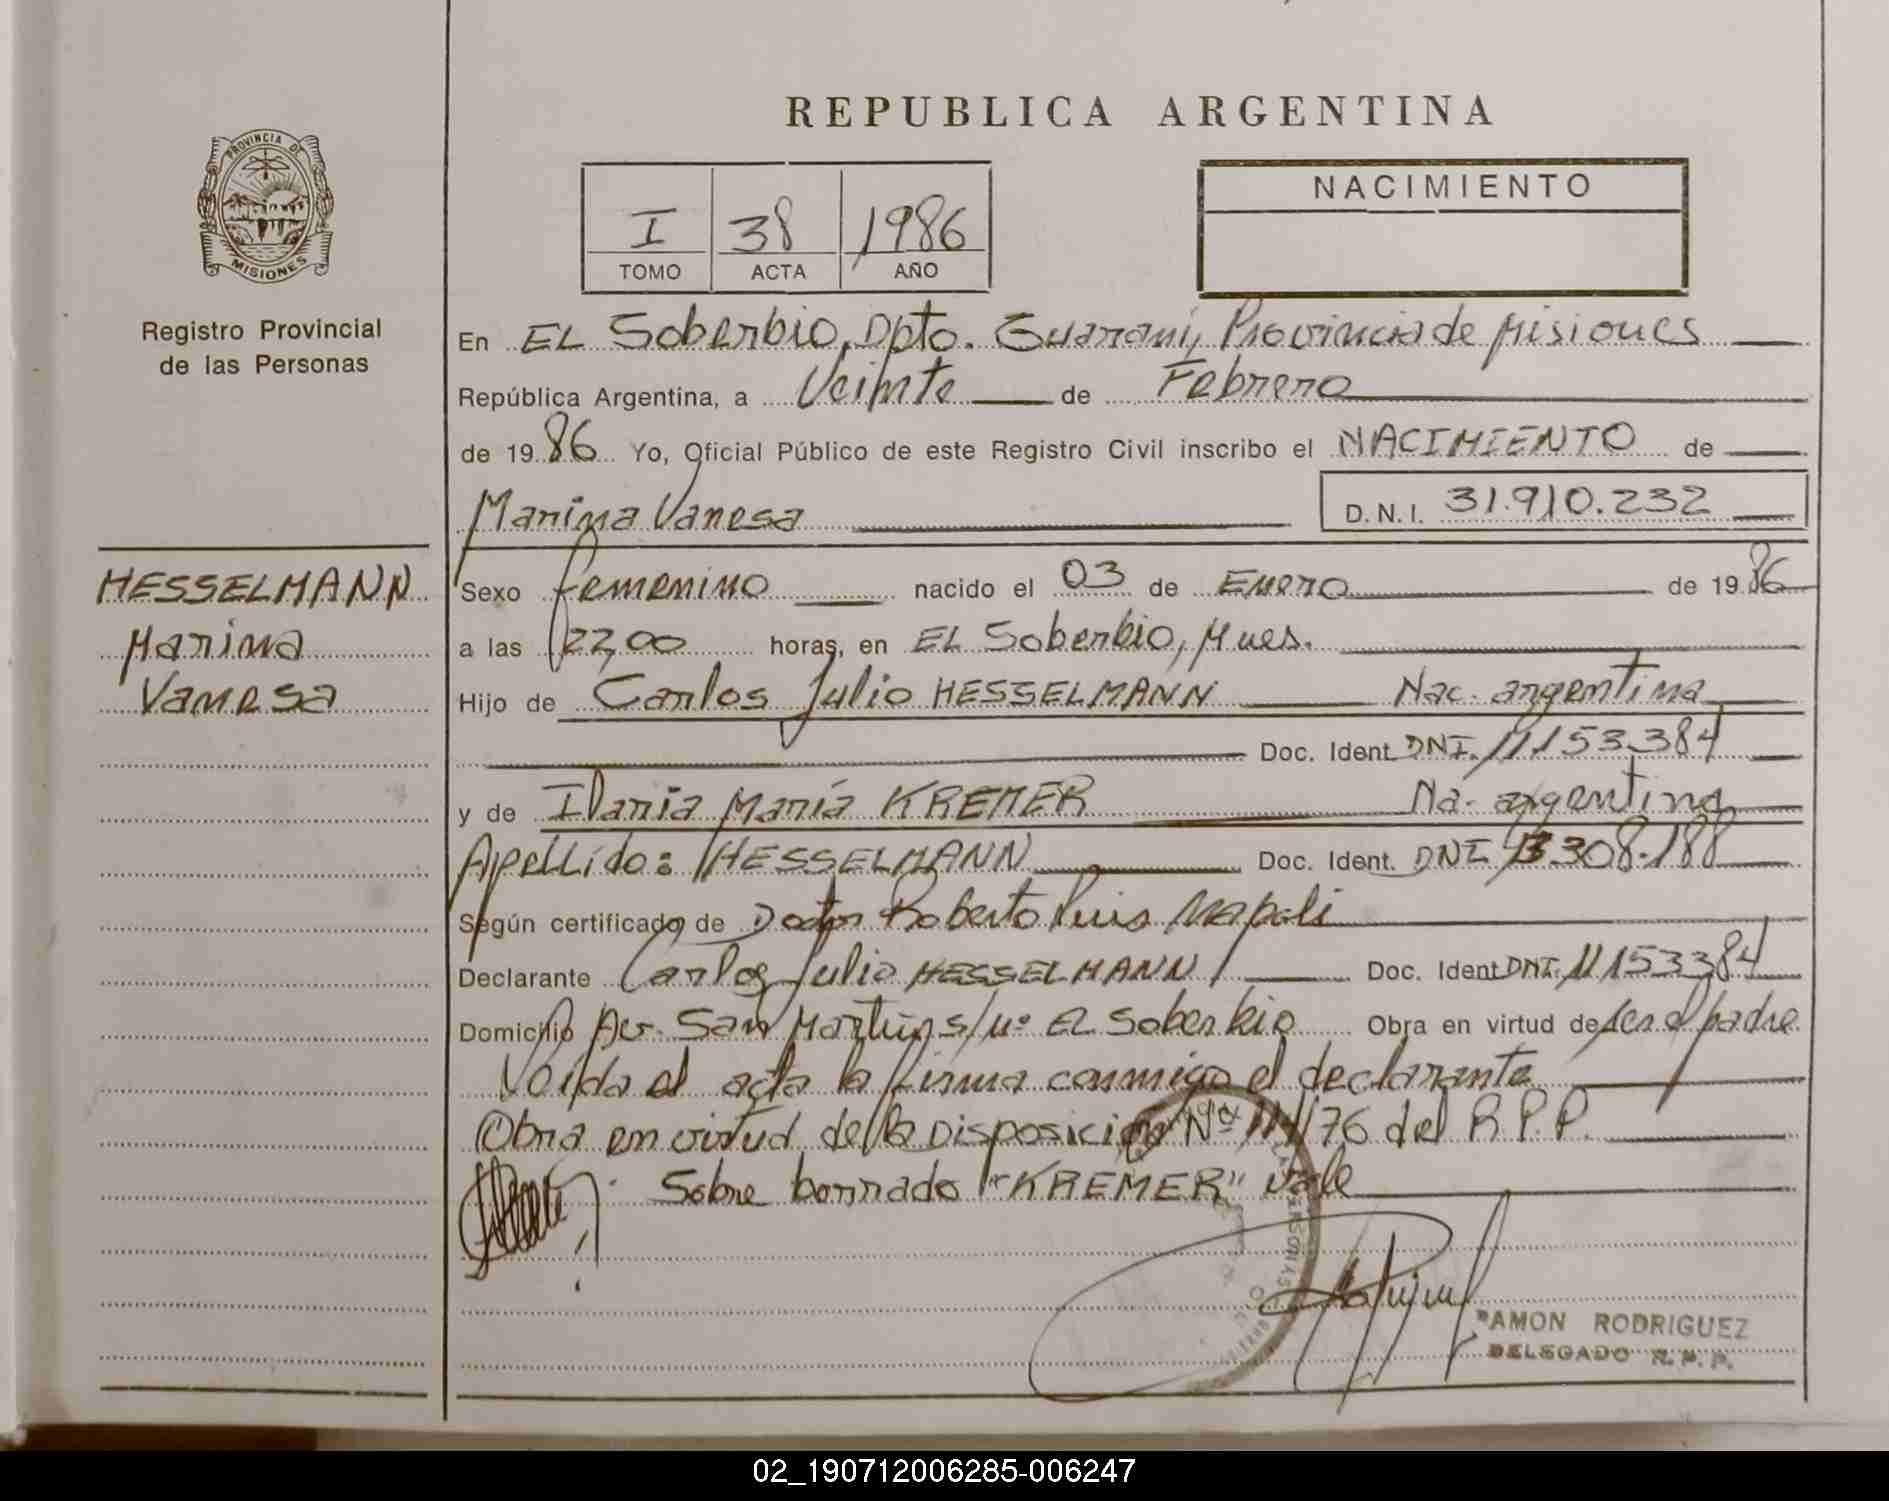 REPUBLICA ARGENTINA
PROVINCIA DE
MISIONES
Registro Provincial
de las Personas
I 38 1986
TOMO ACTA AÑO
NACIMIENTO
En EL Soberbio, Dpto. Guaraní, Provincia de Misiones
República Argentina, a Veinte de Febrero
de 1986 Yo, Oficial Público de este Registro Civil inscribo el NACIMIENTO de
Marina Vanesa D.N.I. 31.910.232
HESSELMANN
Marina
Vanesa
Sexo femenino nacido el 03 de Enero de 1986
a las 22,00 horas, en EL Soberbio, Mnes.
Hijo de Carlos Julio HESSELMANN Nac. argentina
Doc. Ident. DNI. 11153.384
y de Ilaria María KREMER Na. argentina
Apellido: HESSELMANN Doc. Ident. DNI 13.308.188
Según certificado de Doctor Roberto Luis Napoli
Declarante Carlos Julio HESSELMANN Doc. Ident DNI. 11153384
Domicilio Av. San Martín s/nº EL Soberbio Obra en virtud de ser el padre
Leída el acta la firma conmigo el declarante
Obra en virtud de la Disposición Nº 114/76 del R.P.P.
Sobre borrado "KREMER" vale
RAMON RODRIGUEZ
DELEGADO R.P.P.
02_190712006285-006247